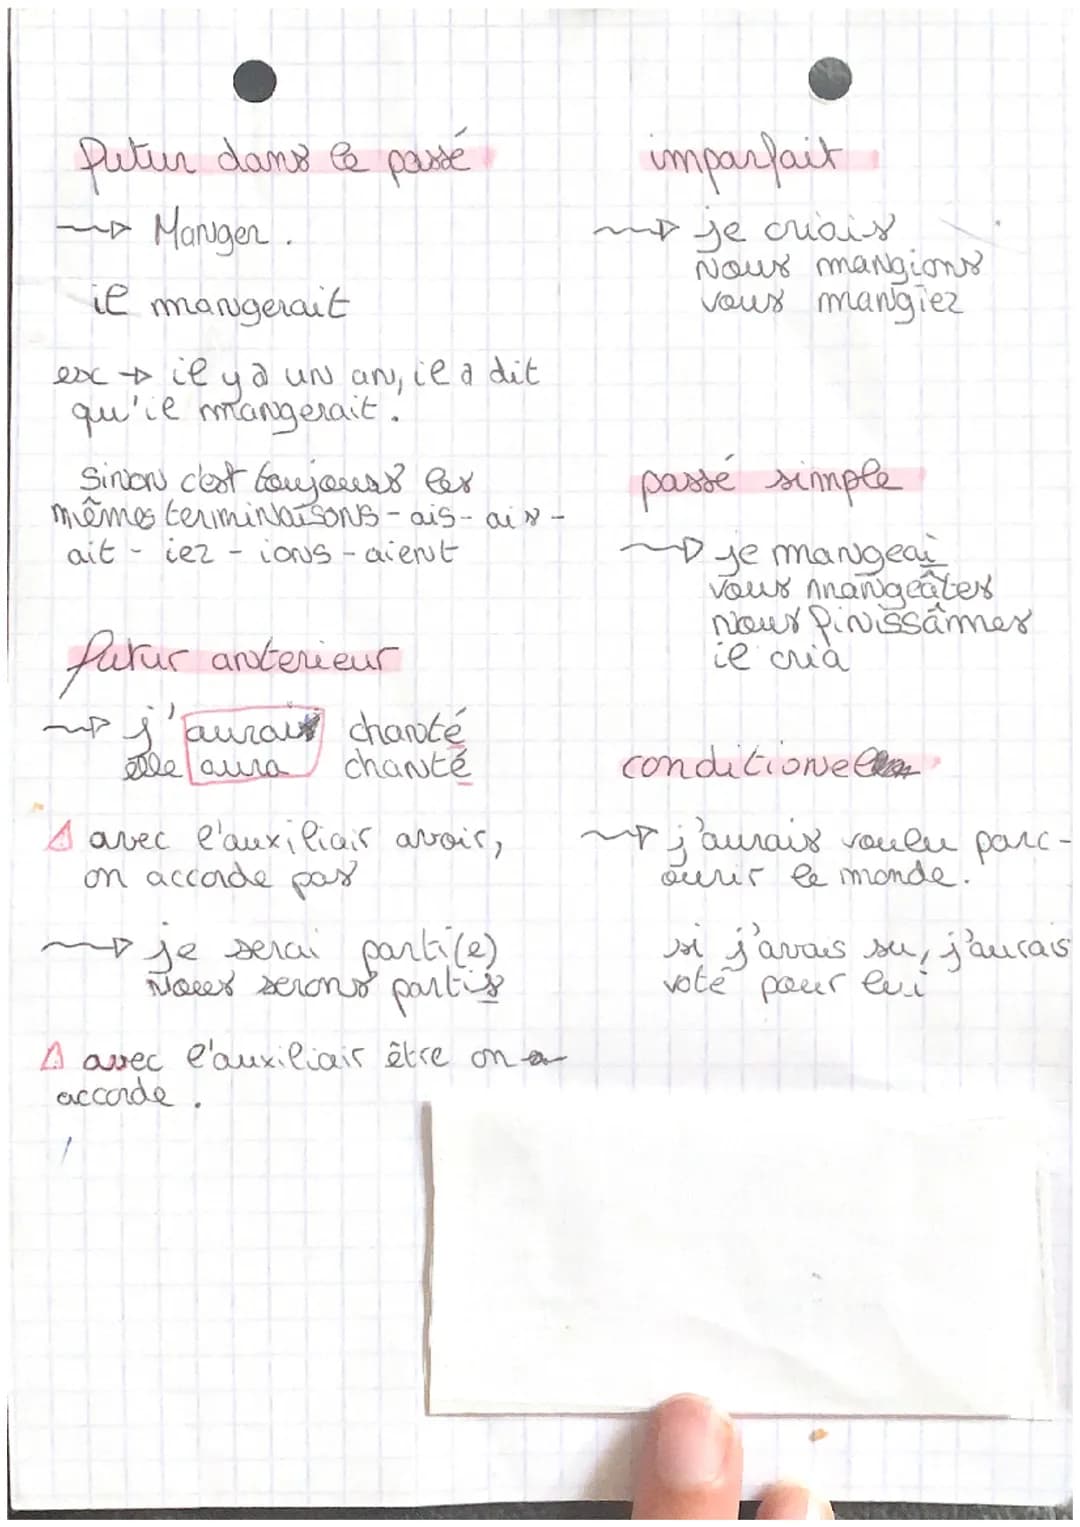 futur dans le passé
→ Manger.
il mangerait
ex → il y a un an, il a dit
qu'il mangerait.
Sinon c'est toujours les
mêmes terminaisons - ais - ais -
ait - iez - ions - aient
futur anterieur
→ j'aurai chanté
elle aura chanté
⚠ avec l'auxiliair avoir,
on accorde pas
→ je serai parti(e)
Nous serons partis
⚠ avec l'auxiliair être on
accorde.
imparfait
→ je criais
Nous mangions
vous mangiez
passé simple
→ je mangeai
vous mangeâtes
nous finissâmes
il cria
conditionel
→ j'aurais voulu parc-
ourir le monde.
si j'avais su, j'aurais
voté pour lui